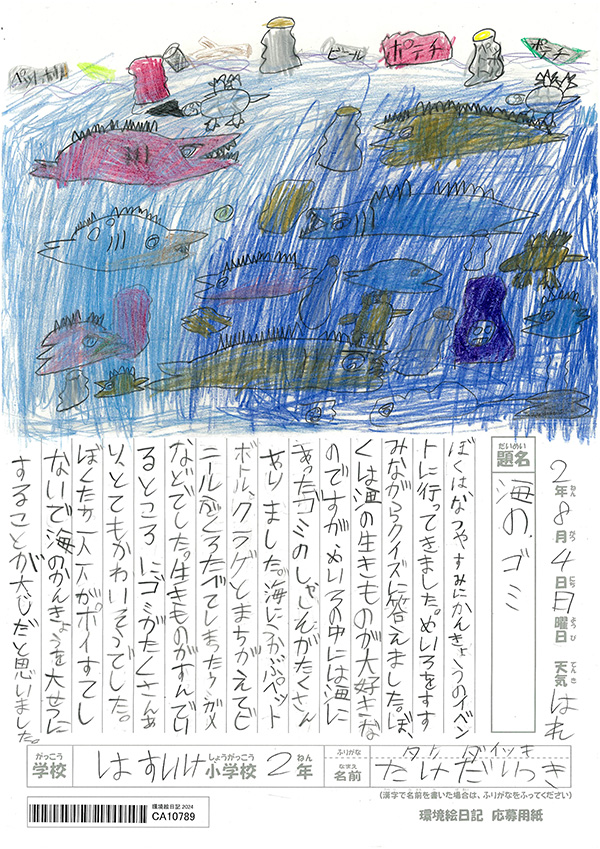 ペットボトル
ビニール
ポテチ
ペット
ポテチ
2年8月4日日曜日 天気 はれ
ねん がつ にち ようび てんき
だいめい
題名 海の、ゴミ
ぼくはなつやすみにかんきょうのイベン
トに行ってきました。めいろをすす
みながらクイズに答えました。ぼ、
くは海の生きものが大好きな
のですがめいろの中には海に
あったゴミのしゃしんがたくさん
ありました。海にうかぶペット
ボトル、クラゲとまちがえてビ
ニールぶくろたべてしまったカメ
などでした。生きものがすんでい
るところにゴミがたくさんあ
り、とてもかわいそうでした。
ぼくたち一人一人がポイすてし
ないで海のかんきょうを大せつに
することが大じだと思いました。
がっこう しょうがっこう ねん
学校 はすいけ小学校 2年
ふりがな タケ ダイツキ
なまえ
名前 たけだいつき
(漢字で名前を書いた場合は、ふりがなをふってください)
環境絵日記 2024
CA10789
環境絵日記 応募用紙